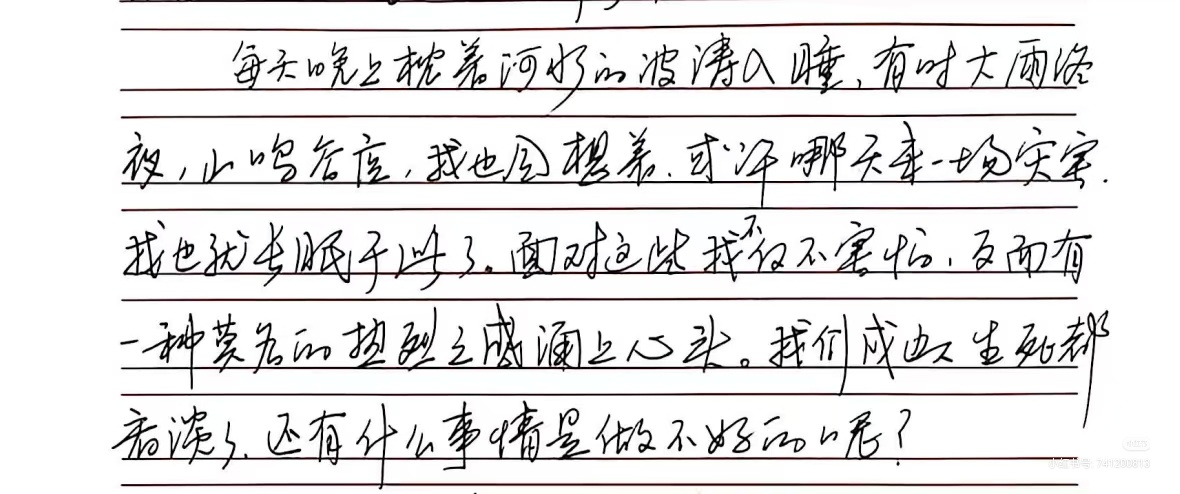 每天晚上枕着河水的波涛入睡,有时大雨终
夜,山鸣谷应,我也会想着,或许哪天来一场灾害,
我也就长眠于此了。面对这些我不仅不害怕,反而有
一种莫名的热烈之感涌上心头。我们成边人生死都
看淡了,还有什么事情是做不好的呢?
小红书
小红书号:741200813